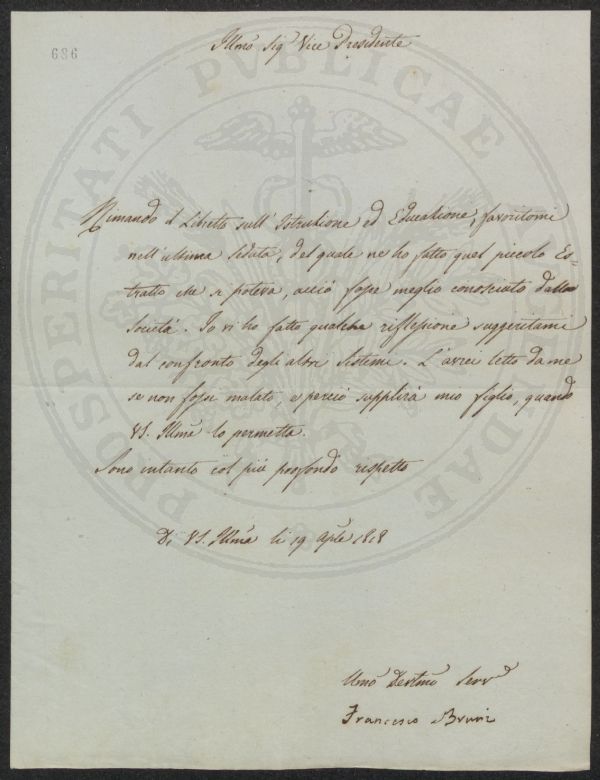 686
Illmo Sigr Vice Presidente
PROSPERITATI PVBLICAE AVGENDAE
Rimando il Libretto sull' Istruzione ed Educazione, favoritomi
nell' ultima seduta, del quale ne ho fatto quel piccolo Es=
tratto che si poteva, acciò fosse meglio conosciuto dalla
Società. Io vi ho fatto qualche riflessione suggeritami
dal confronto degli altri sistemi. L'avrei letto da me
se non fossi malato, e perciò supplirà mio figlio, quando
VS. Illma lo permetta.
Sono intanto col più profondo rispetto
Di VS. Illma li 19 Aple 1818
Umo Devtmo Servo
Francesco Bruni